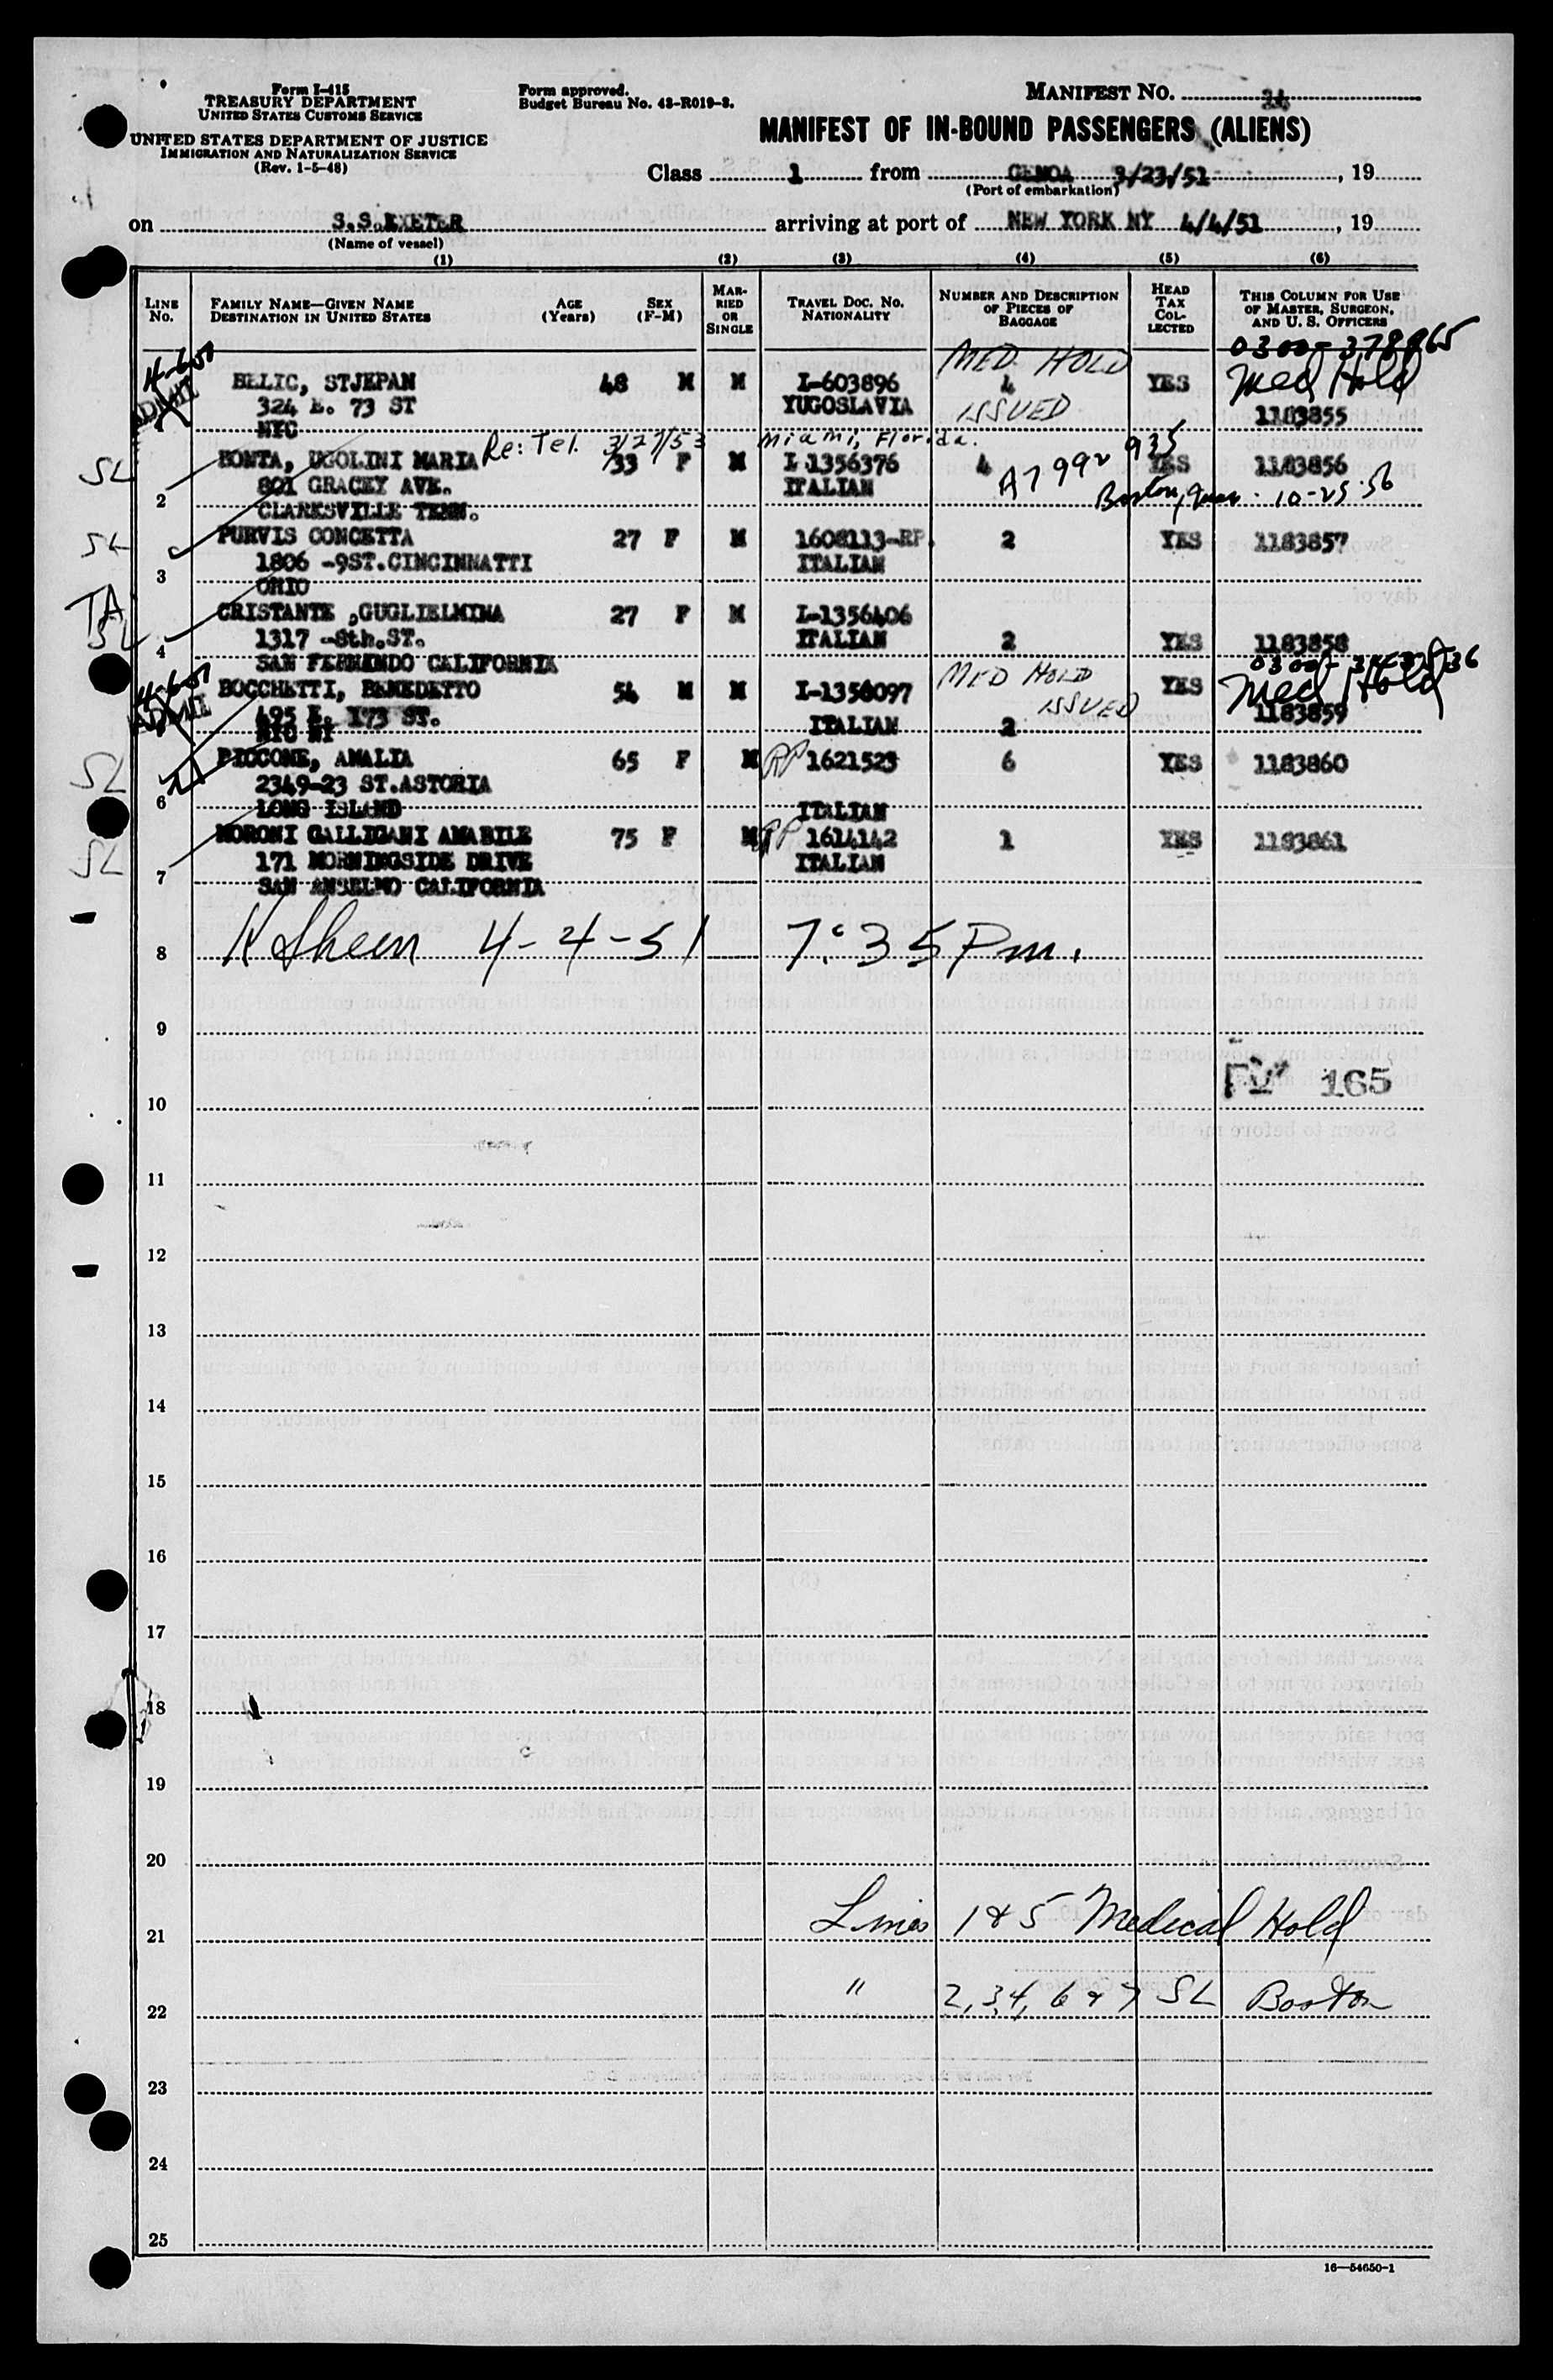 Form I-415
TREASURY DEPARTMENT
UNITED STATES CUSTOMS SERVICE
UNITED STATES DEPARTMENT OF JUSTICE
IMMIGRATION AND NATURALIZATION SERVICE
(Rev. 1-5-48)
Form approved.
Budget Bureau No. 43-R019-3.
MANIFEST NO.
MANIFEST OF IN-BOUND PASSENGERS (ALIENS)
Class 1 from GENOA 3/23/51, 19
(Port of embarkation)
on S.S.EXETER arriving at port of NEW YORK NY 4/4/51, 19
(Name of vessel)
(1) (2) (3) (4) (5) (6)
LINE NO. FAMILY NAME—GIVEN NAME DESTINATION IN UNITED STATES AGE (Years) SEX (F-M) MARRIED OR SINGLE TRAVEL DOC. NO. NATIONALITY NUMBER AND DESCRIPTION OF PIECES OF BAGGAGE HEAD TAX COLLECTED THIS COLUMN FOR USE OF MASTER, SURGEON, AND U. S. OFFICERS
MED HOLD 0300-378865
BELIC, STJEPAN 48 M M I-603896 4 YES Med Hold
324 E. 73 ST YUGOSLAVIA ISSUED 1183855
NYC
Re: Tel. 3/27/53 Miami, Florida.
BONTA, UGOLINI MARIA 33 F M I-1356376 4 A7 992 935 YES 1183856
SL 2 801 GRACEY AVE. ITALIAN Boston, 10-25-56
CLARKSVILLE TENN.
SL PURVIS CONCETTA 27 F M 1608113-RP. 2 YES 1183857
3 1806 -9ST.CINCINNATTI ITALIAN
OHIO
TA CRISTANTE ,GUGLIELMINA 27 F M I-1356406
SL 4 1317 -8th.ST. ITALIAN 2 YES 1183858
SAN FERNANDO CALIFORNIA
BOCCHETTI, BENEDETTO 54 M M I-1358097 MED HOLD YES Med Hold
495 E. 173 ST. ITALIAN 2 ISSUED 1183859
NYC NY
SL PICCONE, AMALIA 65 F M RP 1621523 6 YES 1183860
2349-23 ST.ASTORIA
6 LONG ISLAND ITALIAN
MORONI GALLIGANI AMABILE 75 F M RP 1614142 1 YES 1183861
SL 171 MORNINGSIDE DRIVE ITALIAN
7 SAN ANSELMO CALIFORNIA
8 K Sheen 4-4-51 7:35 Pm.
9
165
10
11
12
13
14
15
16
17
18
19
20
21 Lines 1 & 5 Medical Hold
22 " 2,3,4, 6 & 7 SL Boston
23
24
25
16—54650-1